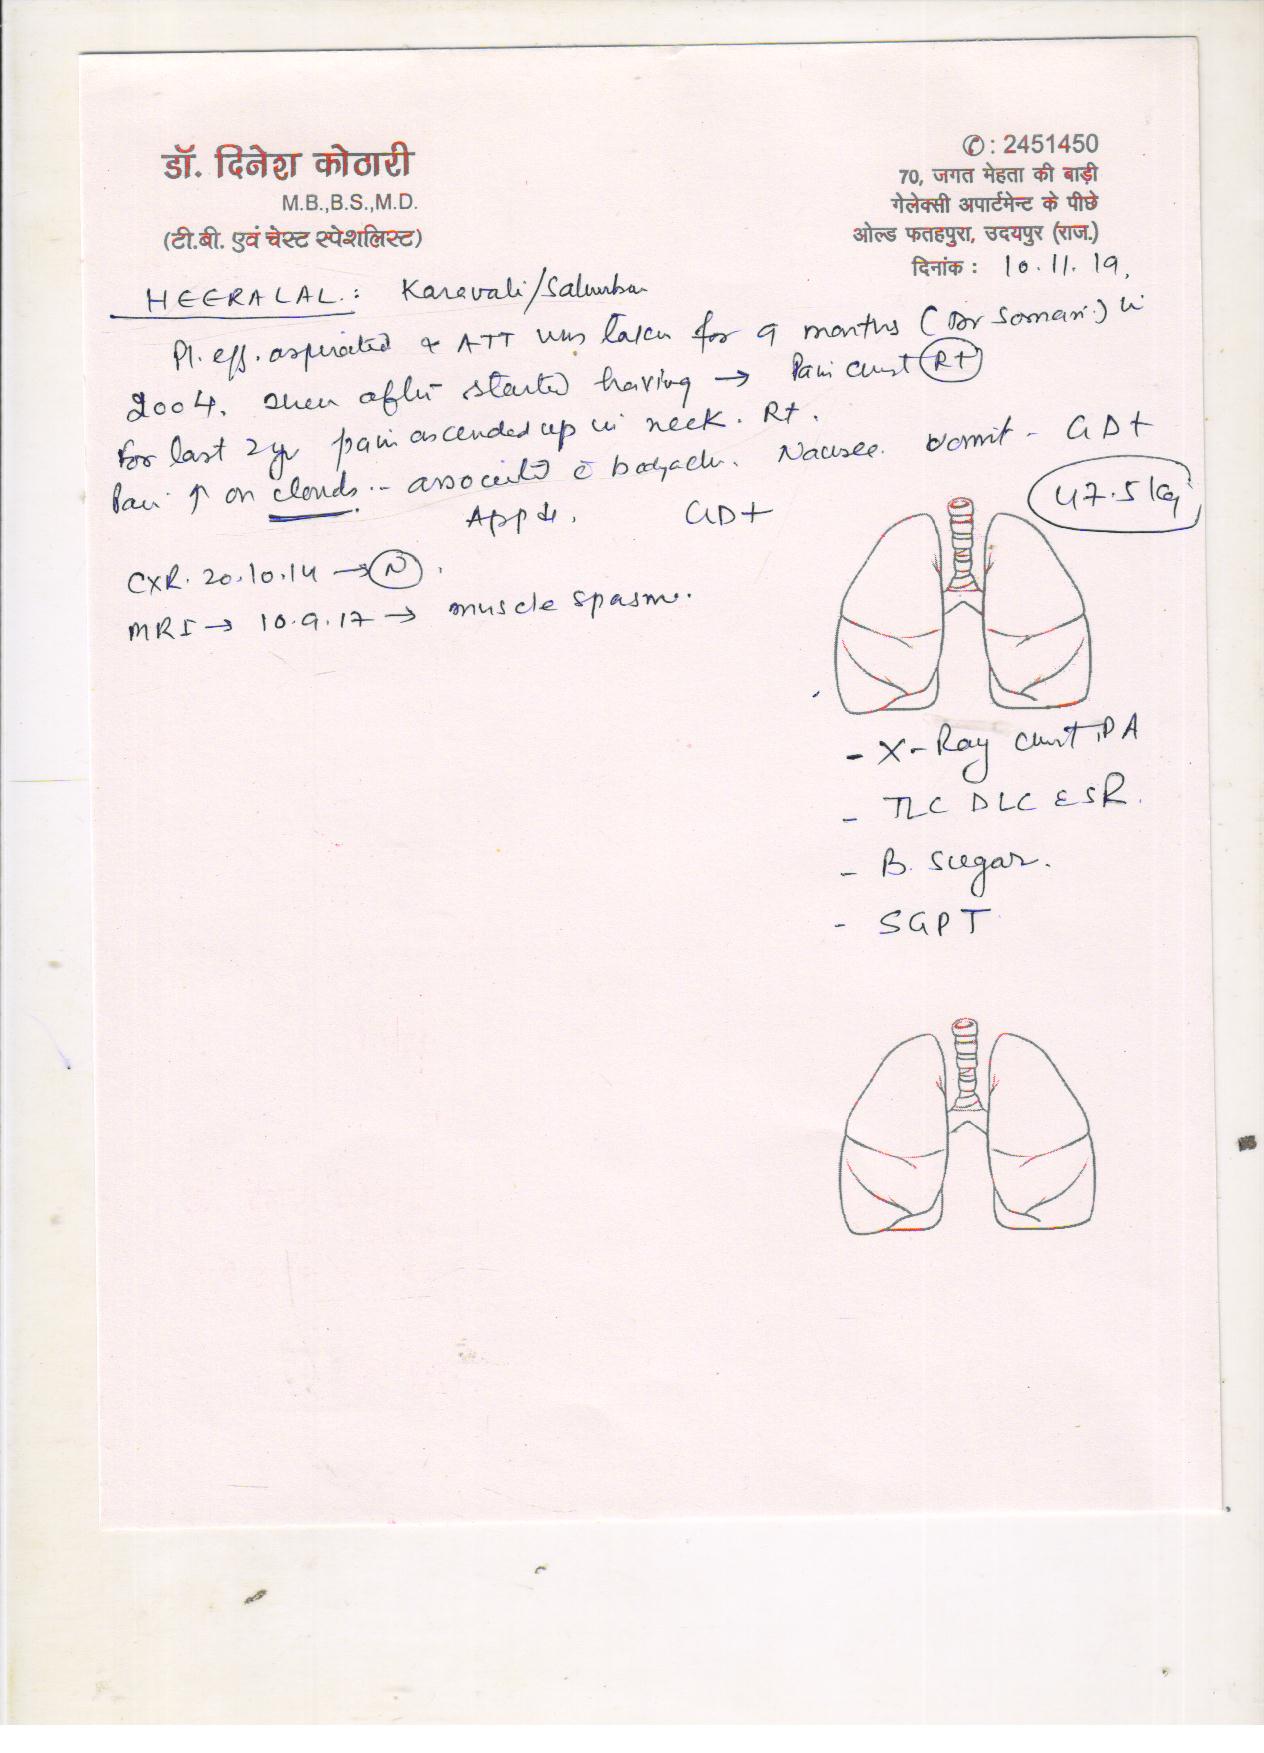 डॉ. दिनेश कोठारी
M.B.,B.S.,M.D.
(टी.बी. एवं चेस्ट स्पेशलिस्ट)
✆: 2451450
70, जगत मेहता की बाड़ी
गेलेक्सी अपार्टमेन्ट के पीछे
ओल्ड फतहपुरा, उदयपुर (राज.)
दिनांक : 10.11.19,
HEERALAL.: Karavali/Salumbar
Pl. eff. aspirated & ATT was taken for 9 months (Dr Somani) in
2004. then after started having → Pain chest Rt
For last 2yr pain ascended up in neck. Rt.
Pain ↑ on clouds.. associated c̄ bodyache. Nausea. Vomit - GD+
App ↓. GD+
47.5 kg
CXR. 20.10.14 → N.
MRI → 10.9.17 → muscle spasm.
- X-Ray chest PA
- TLC DLC ESR.
- B. Sugar.
- SGPT